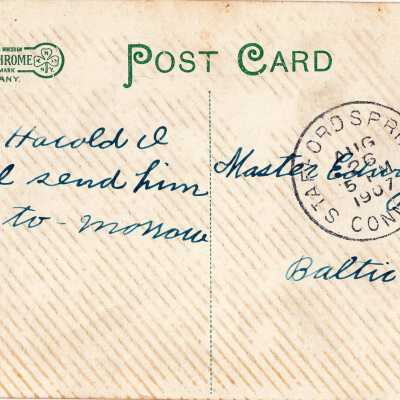 HROME
MARK
ANY.
POST CARD
Harold I
send him
to-morrow
Master Edw
Baltic
STAFFORD SPRI
CONN
AUG
26
5 PM
1907